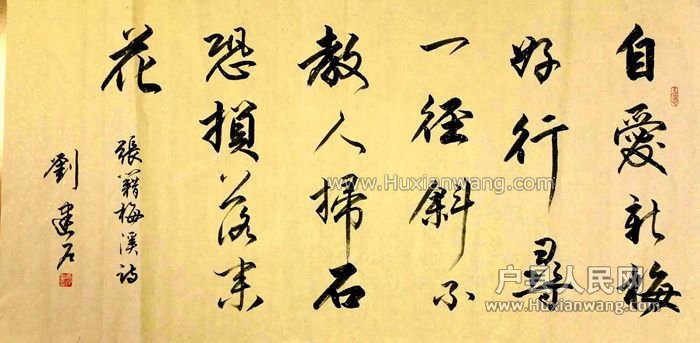 自愛新梅
好行尋
一径斜不
教人掃石
恐損落来
花
張籍梅溪詩
劉建石
www.Huxianwang.com
户县人民网
www.Huxianwang.com